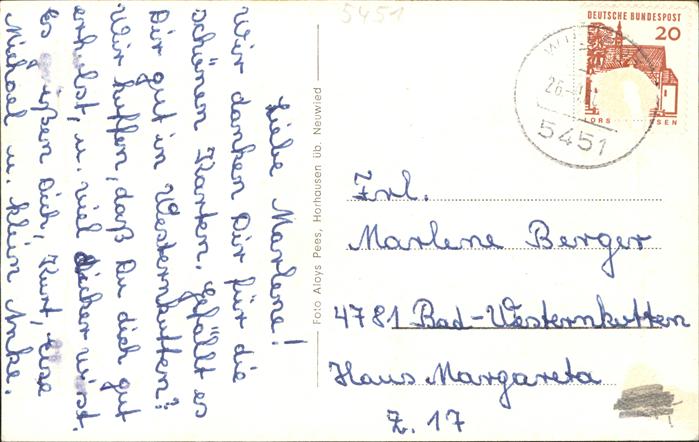 Liebe Marlene!
Wir danken Dir für die
schönen Karten. Gefällt es
Dir gut in Westernkotten?
Wir hoffen, daß Du dich gut
erholst, u. viel dicker wirst.
Es grüßen Dich, Kurt,
Michael u. klein Anke.
Foto Aloys Pees, Horhausen üb. Neuwied
5451
DEUTSCHE BUNDESPOST
20
26
5451
Frl.
Marlene Berger
4781 Bad-Westernkotten
Haus Margareta
Z. 17